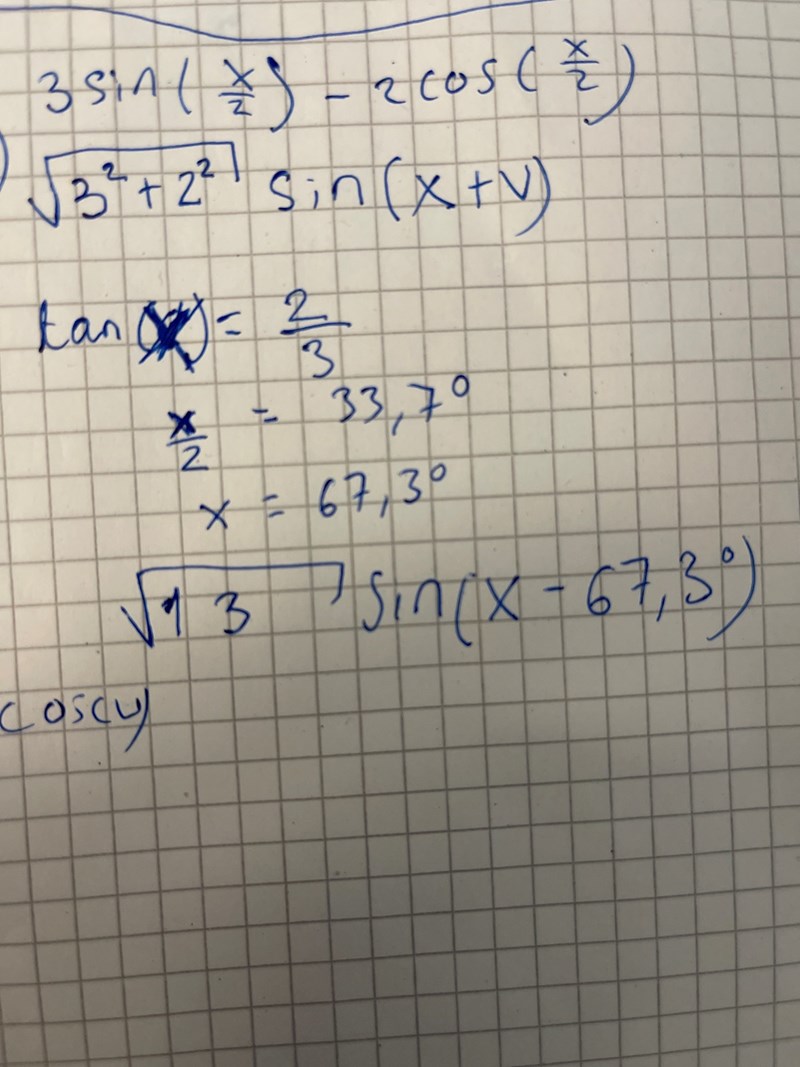 3 sin(x/2) - 2 cos(x/2)
√(3² + 2²) sin(x+v)
tan( ) = 2/3
x/2 = 33,7°
x = 67,3°
√13 sin(x - 67,3°)
cos(v)